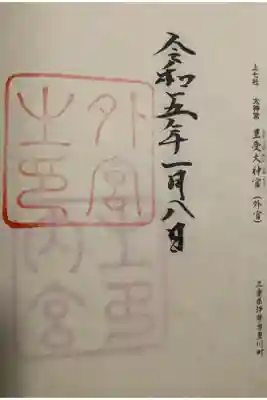 上七社 大神宮 豊受大神宮(外宮)
三重県伊勢市豊川町
令和五年一月八日
外宮
之印